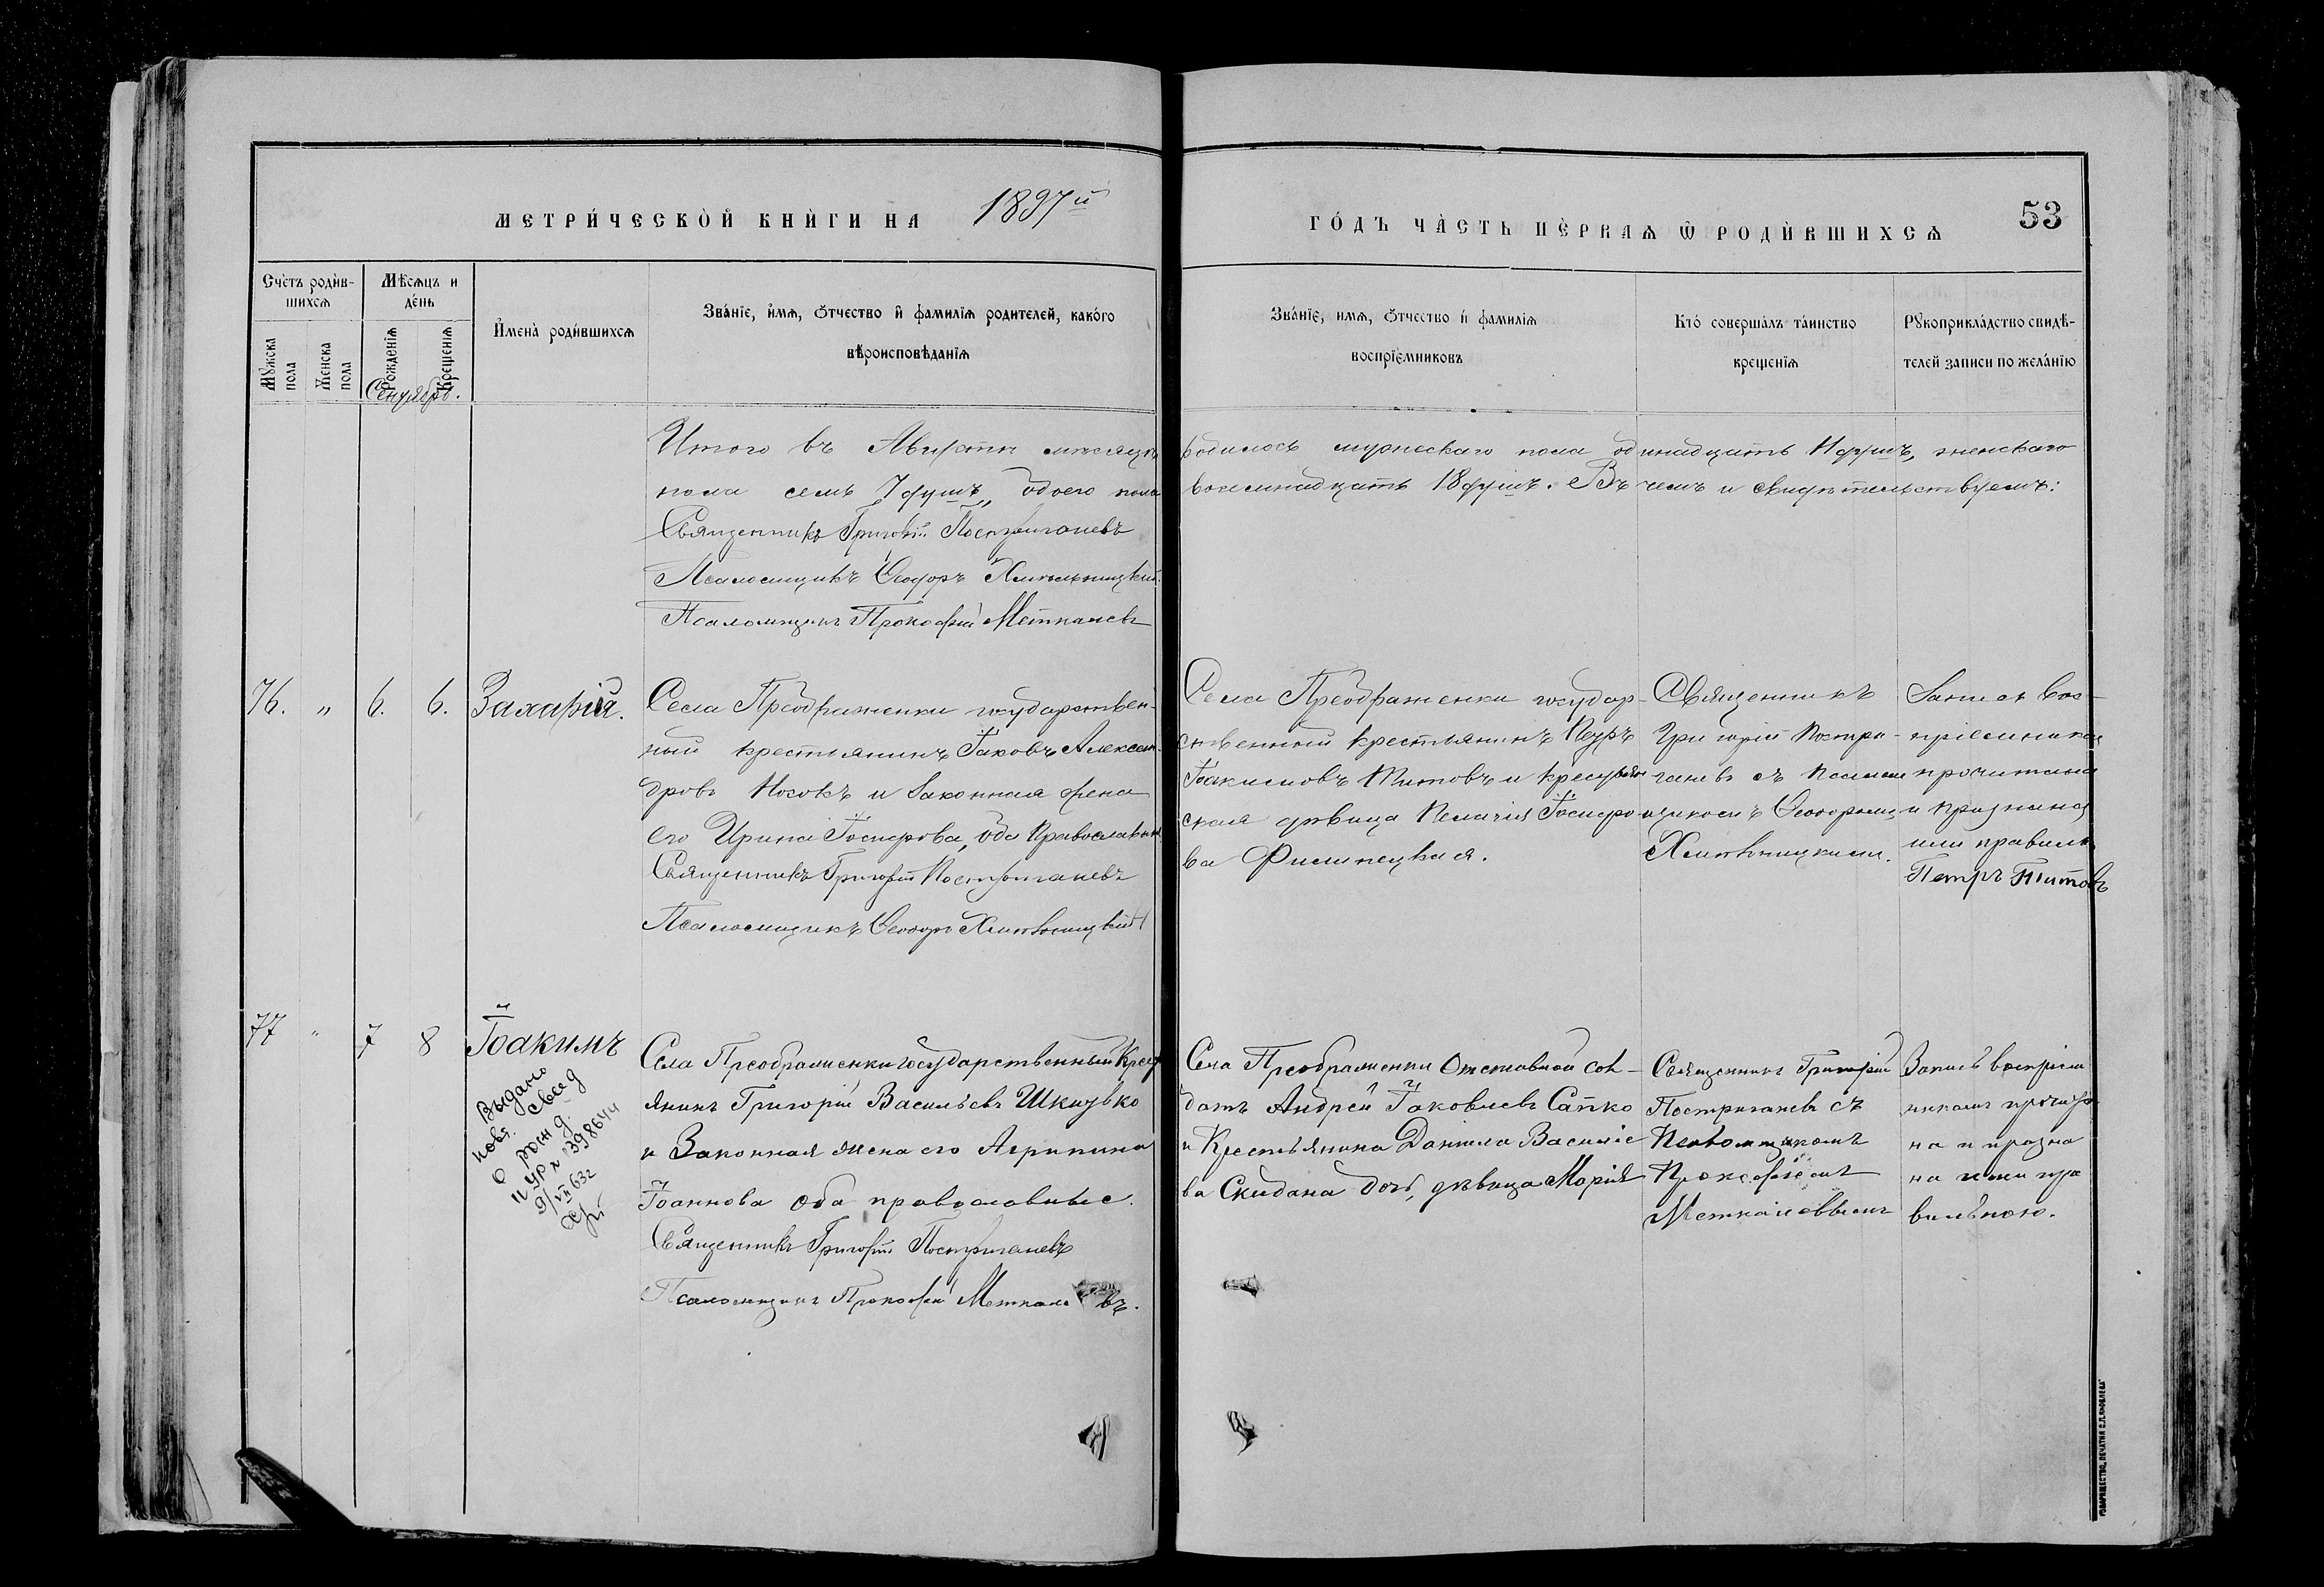 МЕТРИ́ЧЕСКОЙ КНИ́ГИ НА 1897й
ГО́ДЪ ЧА́СТЬ ПЕ́РВАѦ Ѡ РОДИ́ВШИХСѦ 53
Сче́тъ роди́в-
шихсѧ
Мѣ́сѧцъ и
де́нь
Мꙋ́жска
пола
Же́нска
пола
Рожде́нїѧ
Креще́нїѧ
Сентябрь.
И҆мена̀ роди́вшихсѧ
Зва́нїе, и҆́мѧ, ѻ҆́тчество и҆ фамилїѧ родителей, како́го
вѣроисповѣ́данїѧ
Зва́нїе, имѧ, ѻ҆́тчество и҆ фамилїѧ
воспрїе́мниковъ
Кто́ соверша́лъ та́инство
креще́нїѧ
Рꙋкоприкла́дство свидѣ́-
телей записи по жела́нїю
Итого въ Августѣ мѣсяцѣ родилось мужескаго пола одинадцать 11 душъ, женскаго
пола семь 7 душъ, обоего пола восемнадцать 18 душъ. Въ чемъ и свидѣтельствуемъ:
Священникъ Григорій Постригачевъ
Псаломщикъ Ѳеодоръ Хмѣльницкій.
Псаломщикъ Прокофій Меткалевъ
76. „ 6. 6. Захарія.
Села Преображенки государствен-
ный крестьянинъ Іаковъ Алексан-
дровъ Носокъ и законная жена
его Ирина Іосифова, оба Православные.
Священникъ Григорій Постригачевъ
Псаломщикъ Ѳеодоръ Хмѣльницкій
Села Преображенки государ-
ственный крестьянинъ Петръ
Іоакимовъ Титовъ и крестьян
ская дѣвица Пелагія Іосифо
ва
Священникъ
Григорій Постри-
гачевъ съ Псалом
щикомъ Ѳеодоромъ
Хмѣльницкимъ.
Запись вос-
пріемникамъ
прочитана
и признана
ими правильн.
Петръ Титовъ
77 „ 7 8 Іоакимъ
Выдано
повт. свед
о рожд.
9/VII 632
Села Преображенки государственный Крест
янинъ Григорій Васильевъ Шкицько
и Законная жена его Агрипина
Іоаннова оба православные.
Священникъ Григорій Постригачевъ
Псаломщикъ Прокофій Меткалевъ.
Села Преображенки Отставной сол-
датъ Андрей Іаковлевъ Сапко
и Крестьянина Даніила Василіе
ва Скидана дочь, дѣвица Марія
Священникъ Григорій
Постригачевъ съ
Псаломщикомъ
Прокофіемъ
Меткалеввымъ
Запись воспріем
никамъ прочита
на и призна
на ими пра
вильною.
ТОВАРИЩЕСТВО „ПЕЧАТНЯ С.П.ЯКОВЛЕВА"